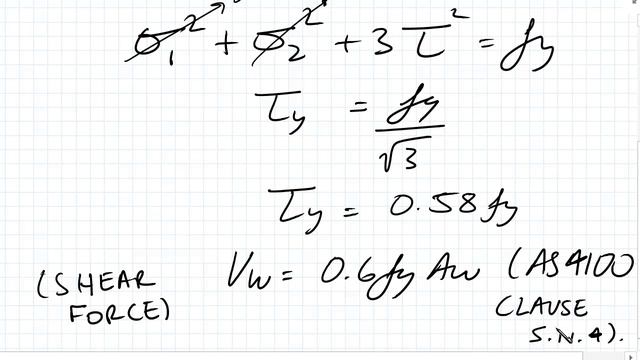 σ₁² + σ₂² + 3τ² = fy
τy = fy/√3
τy = 0.58 fy
(SHEAR FORCE) Vw = 0.6 fy Aw (AS4100 CLAUSE 5.N.4).